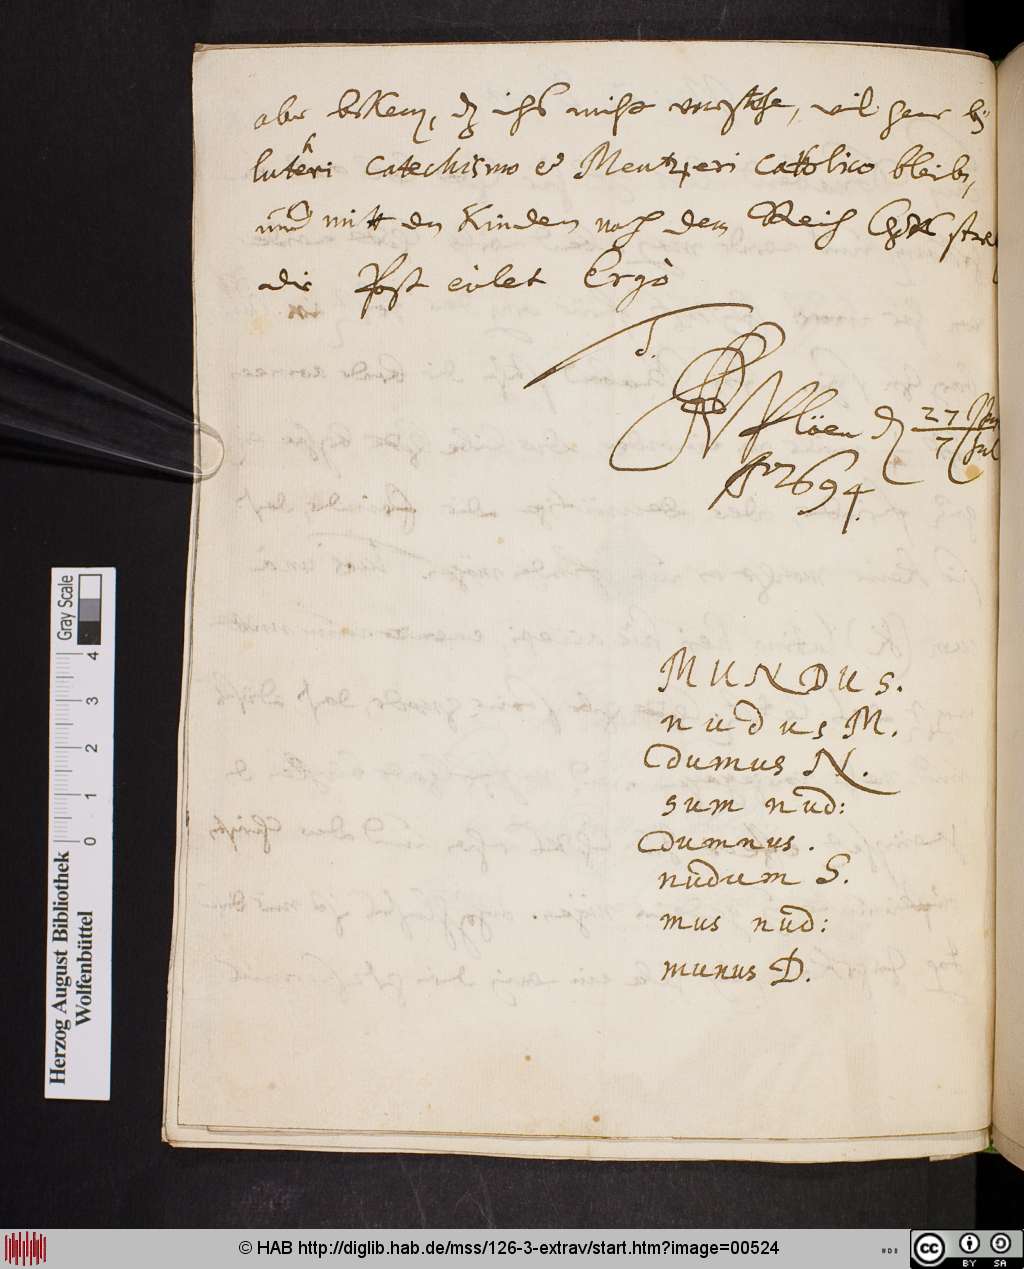 aber bekenn, dz ichs nicht verstehe, wil
lutheri Catechismo et Mentzeri Cattolico bleiben,
und mitt den Kindern nach dem Reich Gottes
die Post eilet Ergò
d.
Plöen d 27
7 Jul
Aº 1694.
MUNDUS.
nudus M.
dumus N.
sum nud:
dumnus.
nudum S.
mus nud:
munus D.
Gray Scale
0 1 2 3 4
Herzog August Bibliothek
Wolfenbüttel
© HAB http://diglib.hab.de/mss/126-3-extrav/start.htm?image=00524
cc BY SA